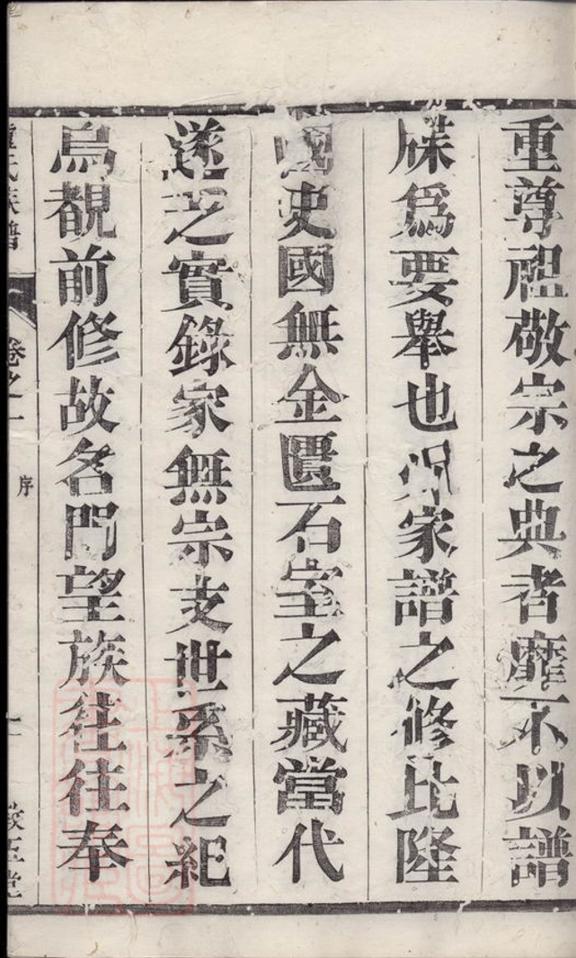 重尊祖敬宗之典者靡不以譜
牒爲要舉也況家譜之修比隆
國史國無金匱石室之藏當代
遂乏實錄家無宗支世系之紀
烏覩前修故名門望族往往奉
氏族譜
卷之一
序